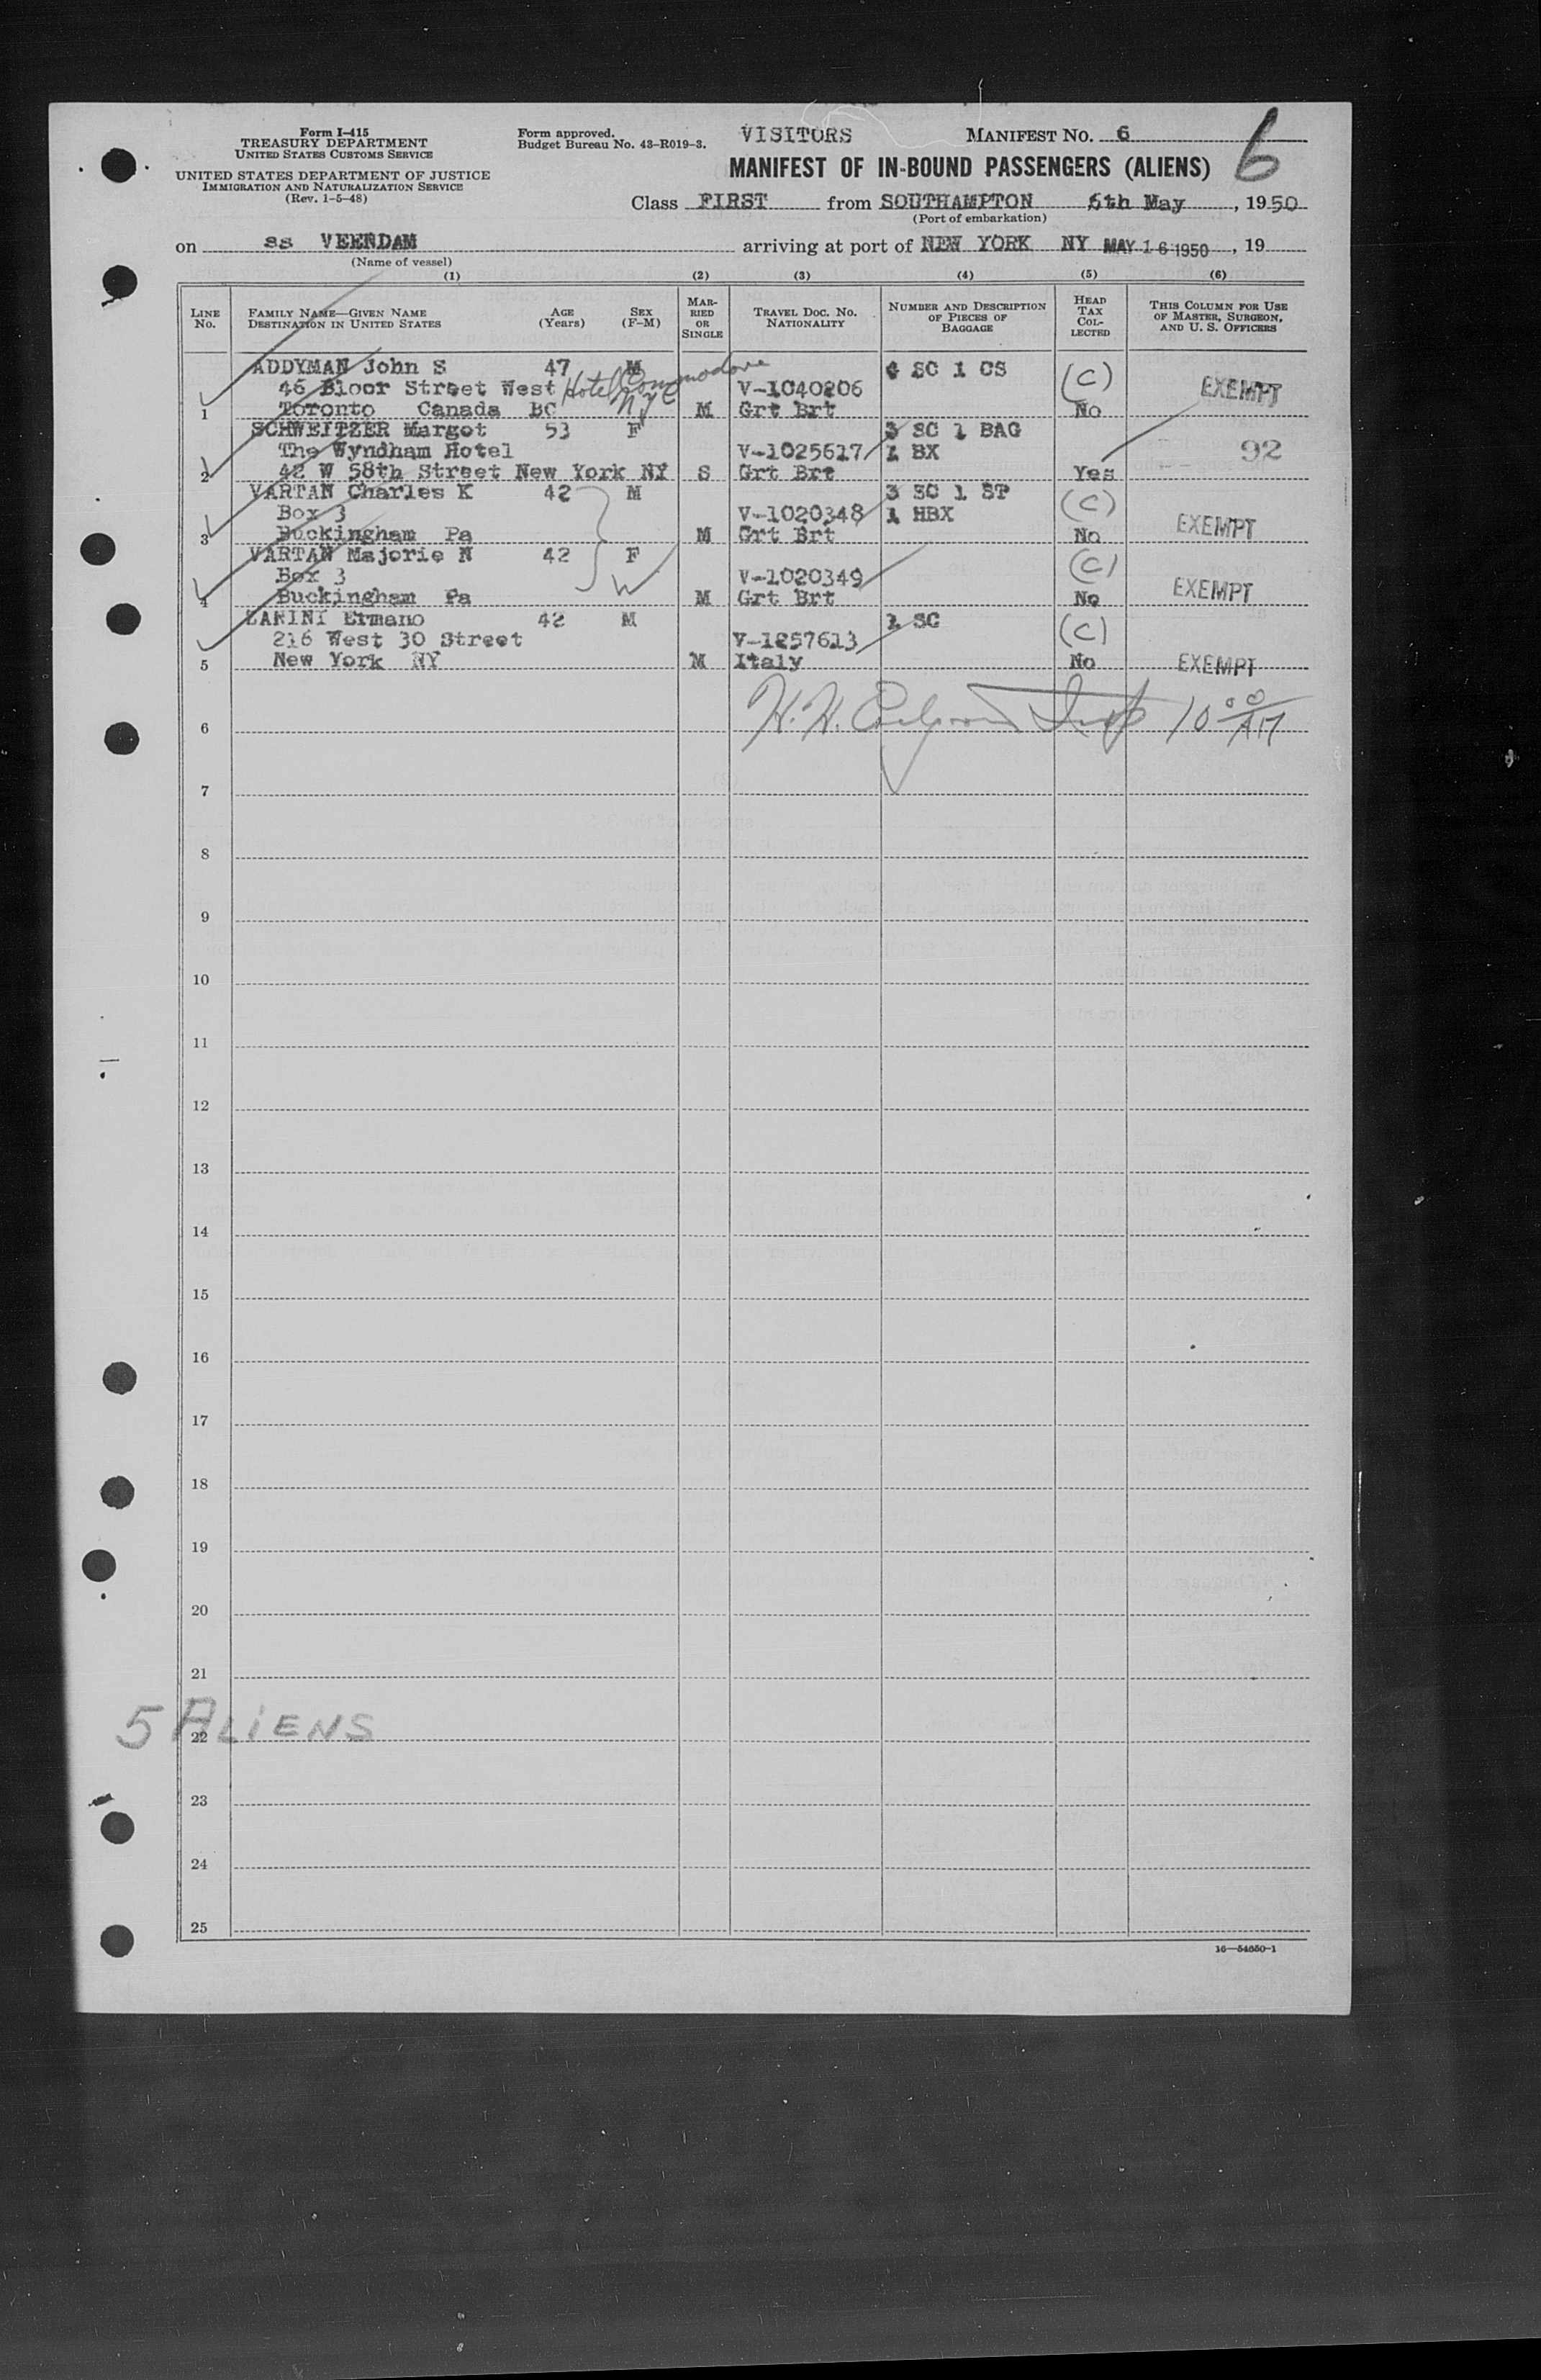 Form I-415
TREASURY DEPARTMENT
UNITED STATES CUSTOMS SERVICE
UNITED STATES DEPARTMENT OF JUSTICE
IMMIGRATION AND NATURALIZATION SERVICE
(Rev. 1-5-48)
Form approved.
Budget Bureau No. 43-R019-3.
VISITORS
MANIFEST NO. 6
6
MANIFEST OF IN-BOUND PASSENGERS (ALIENS)
Class FIRST from SOUTHAMPTON 6th May, 1950
(Port of embarkation)
on ss VEENDAM arriving at port of NEW YORK NY MAY 16 1950, 19
(Name of vessel)
(1) (2) (3) (4) (5) (6)
LINE No.
FAMILY NAME—GIVEN NAME
DESTINATION IN UNITED STATES
AGE (Years)
SEX (F-M)
MARRIED OR SINGLE
TRAVEL DOC. NO. NATIONALITY
NUMBER AND DESCRIPTION OF PIECES OF BAGGAGE
HEAD TAX COLLECTED
THIS COLUMN FOR USE OF MASTER, SURGEON, AND U. S. OFFICERS
ADDYMAN John S 47 M 4 SC 1 CS
46 Bloor Street West Hotel Commodore NYC V-1040206 (C) EXEMPT
1 Toronto Canada BC M Grt Brt No
SCHWEITZER Margot 53 F 3 SC 1 BAG
The Wyndham Hotel V-1025617 1 BX 92
2 42 W 58th Street New York NY S Grt Brt Yes
VARTAN Charles K 42 M 3 SC 1 ST
Box 3 V-1020348 1 HBX (C) EXEMPT
3 Buckingham Pa M Grt Brt No
VARTAN Majorie N 42 F
Box 3 V-1020349 (C) EXEMPT
4 Buckingham Pa M Grt Brt No
ZANINI Ermano 42 M 1 SC
216 West 30 Street V-1257613 (C)
5 New York NY M Italy No EXEMPT
6 H. H. Insp 10 00 AM
7
8
9
10
11
12
13
14
15
16
17
18
19
20
21
5 ALIENS
22
23
24
25
16—54650-1